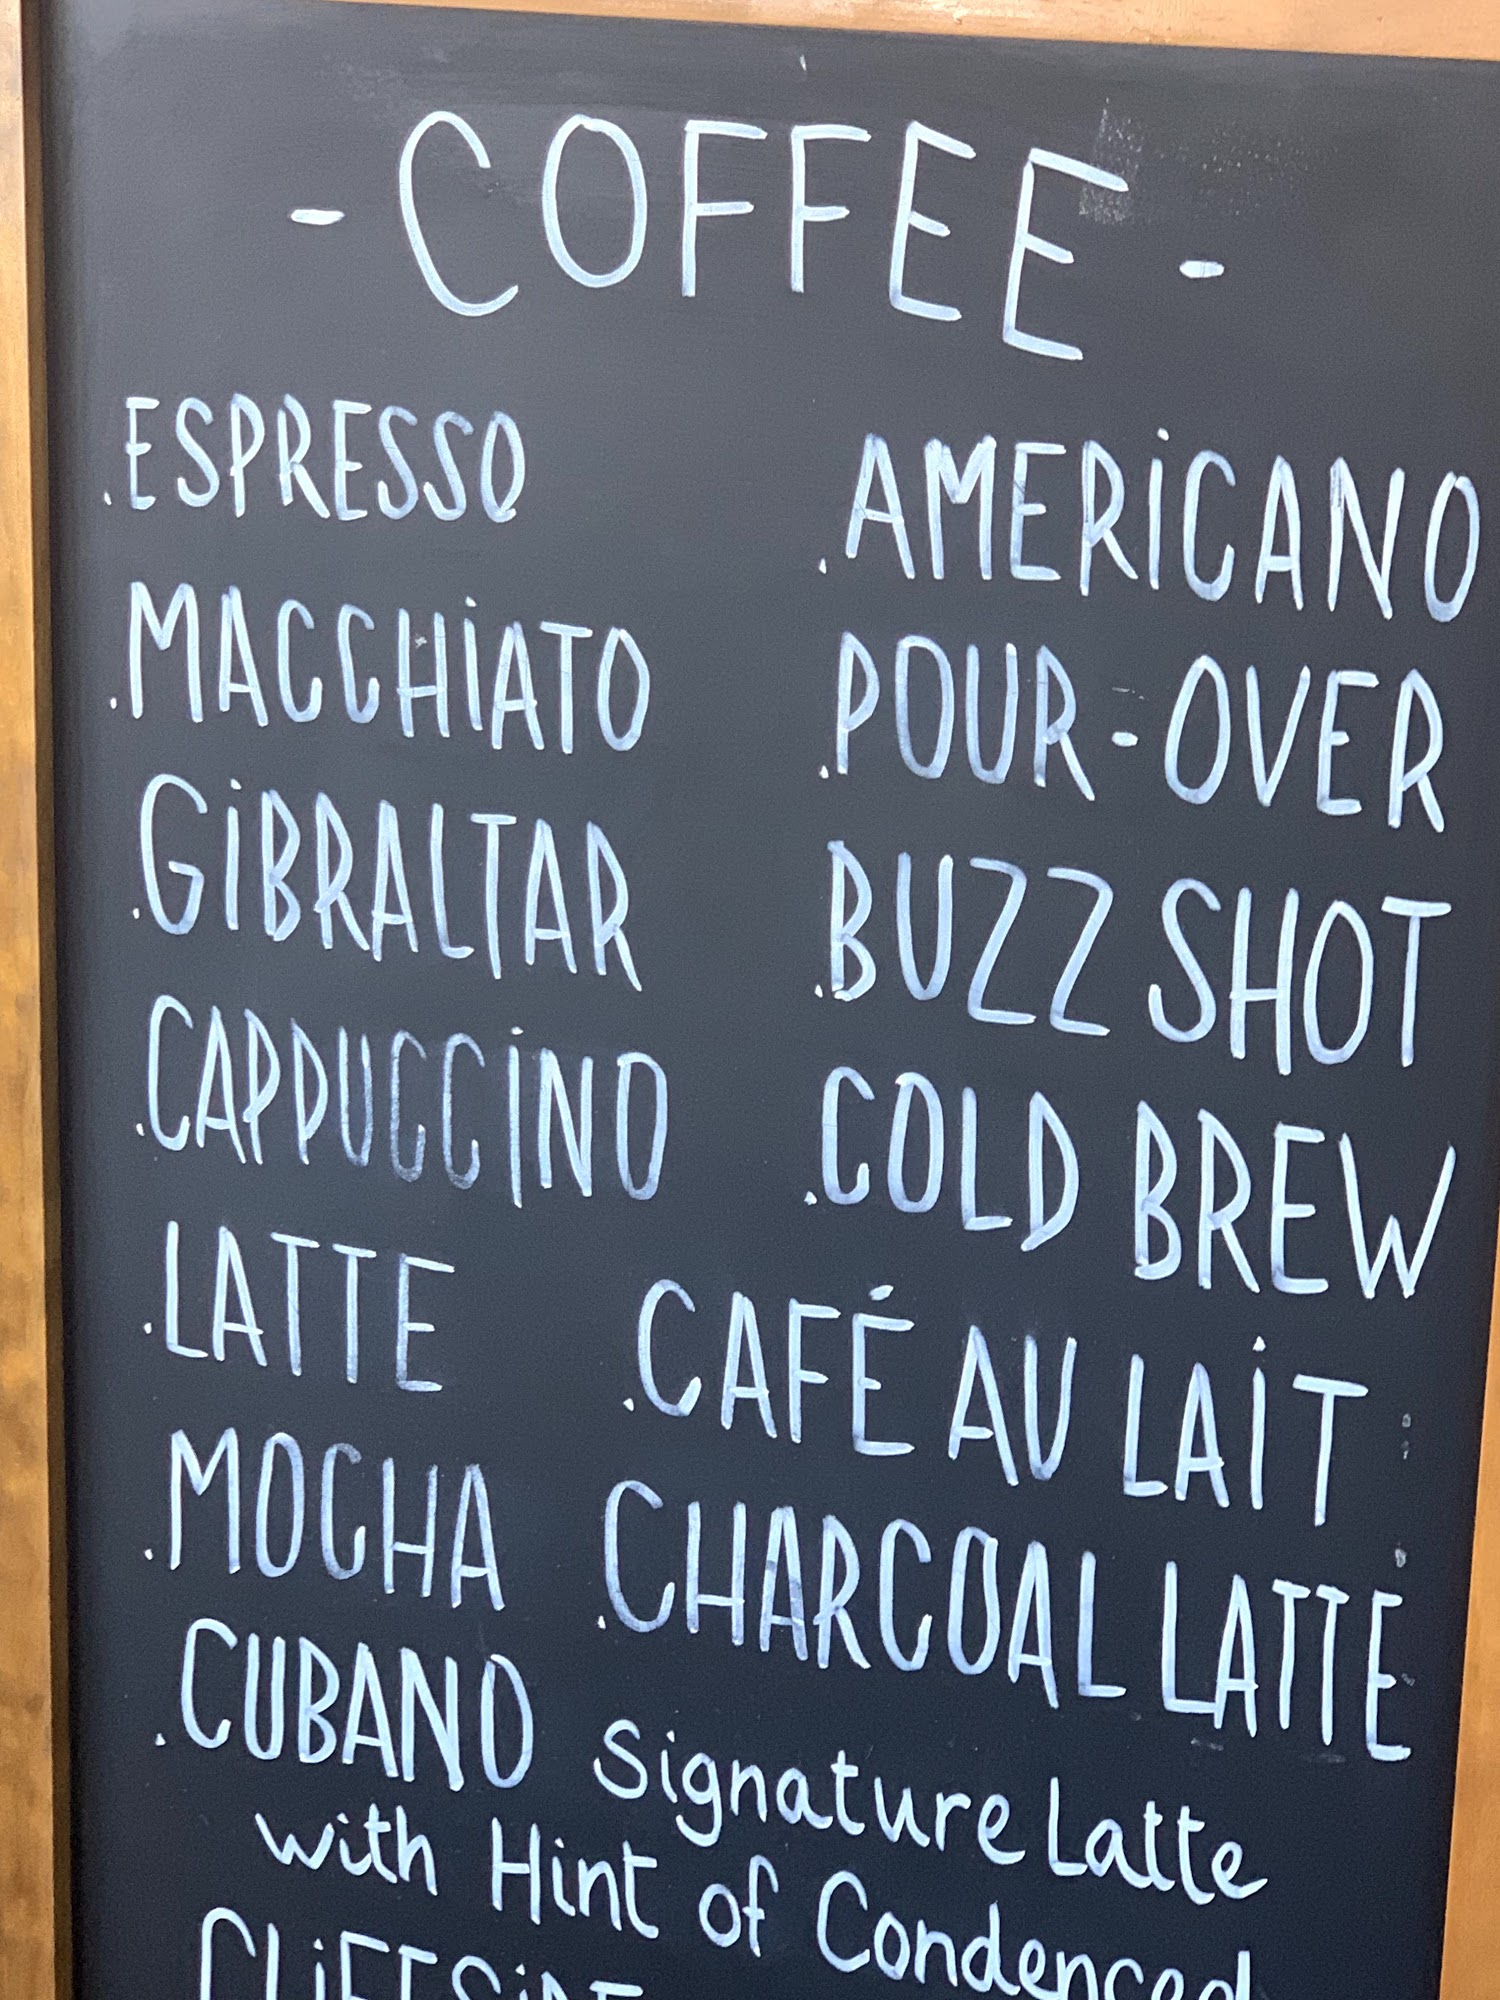 - COFFEE -
.ESPRESSO
.MACCHiATO
.GiBRALTAR
.CAPPUCCiNO
.LATTE
.MOCHA
.CUBANO Signature Latte
with Hint of Condensed
CLiFFSiDE
.AMERiCANO
.POUR-OVER
.BUZZ SHOT
.COLD BREW
.CAFÉ AU LAiT
.CHARCOAL LATTE